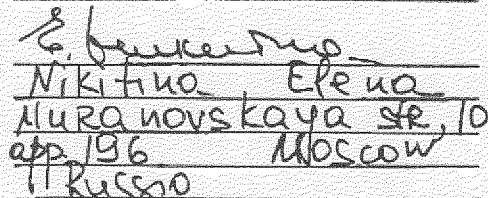 Nikitina Elena
Muranovskaya str, 10
app. 196 Moscow
Russia